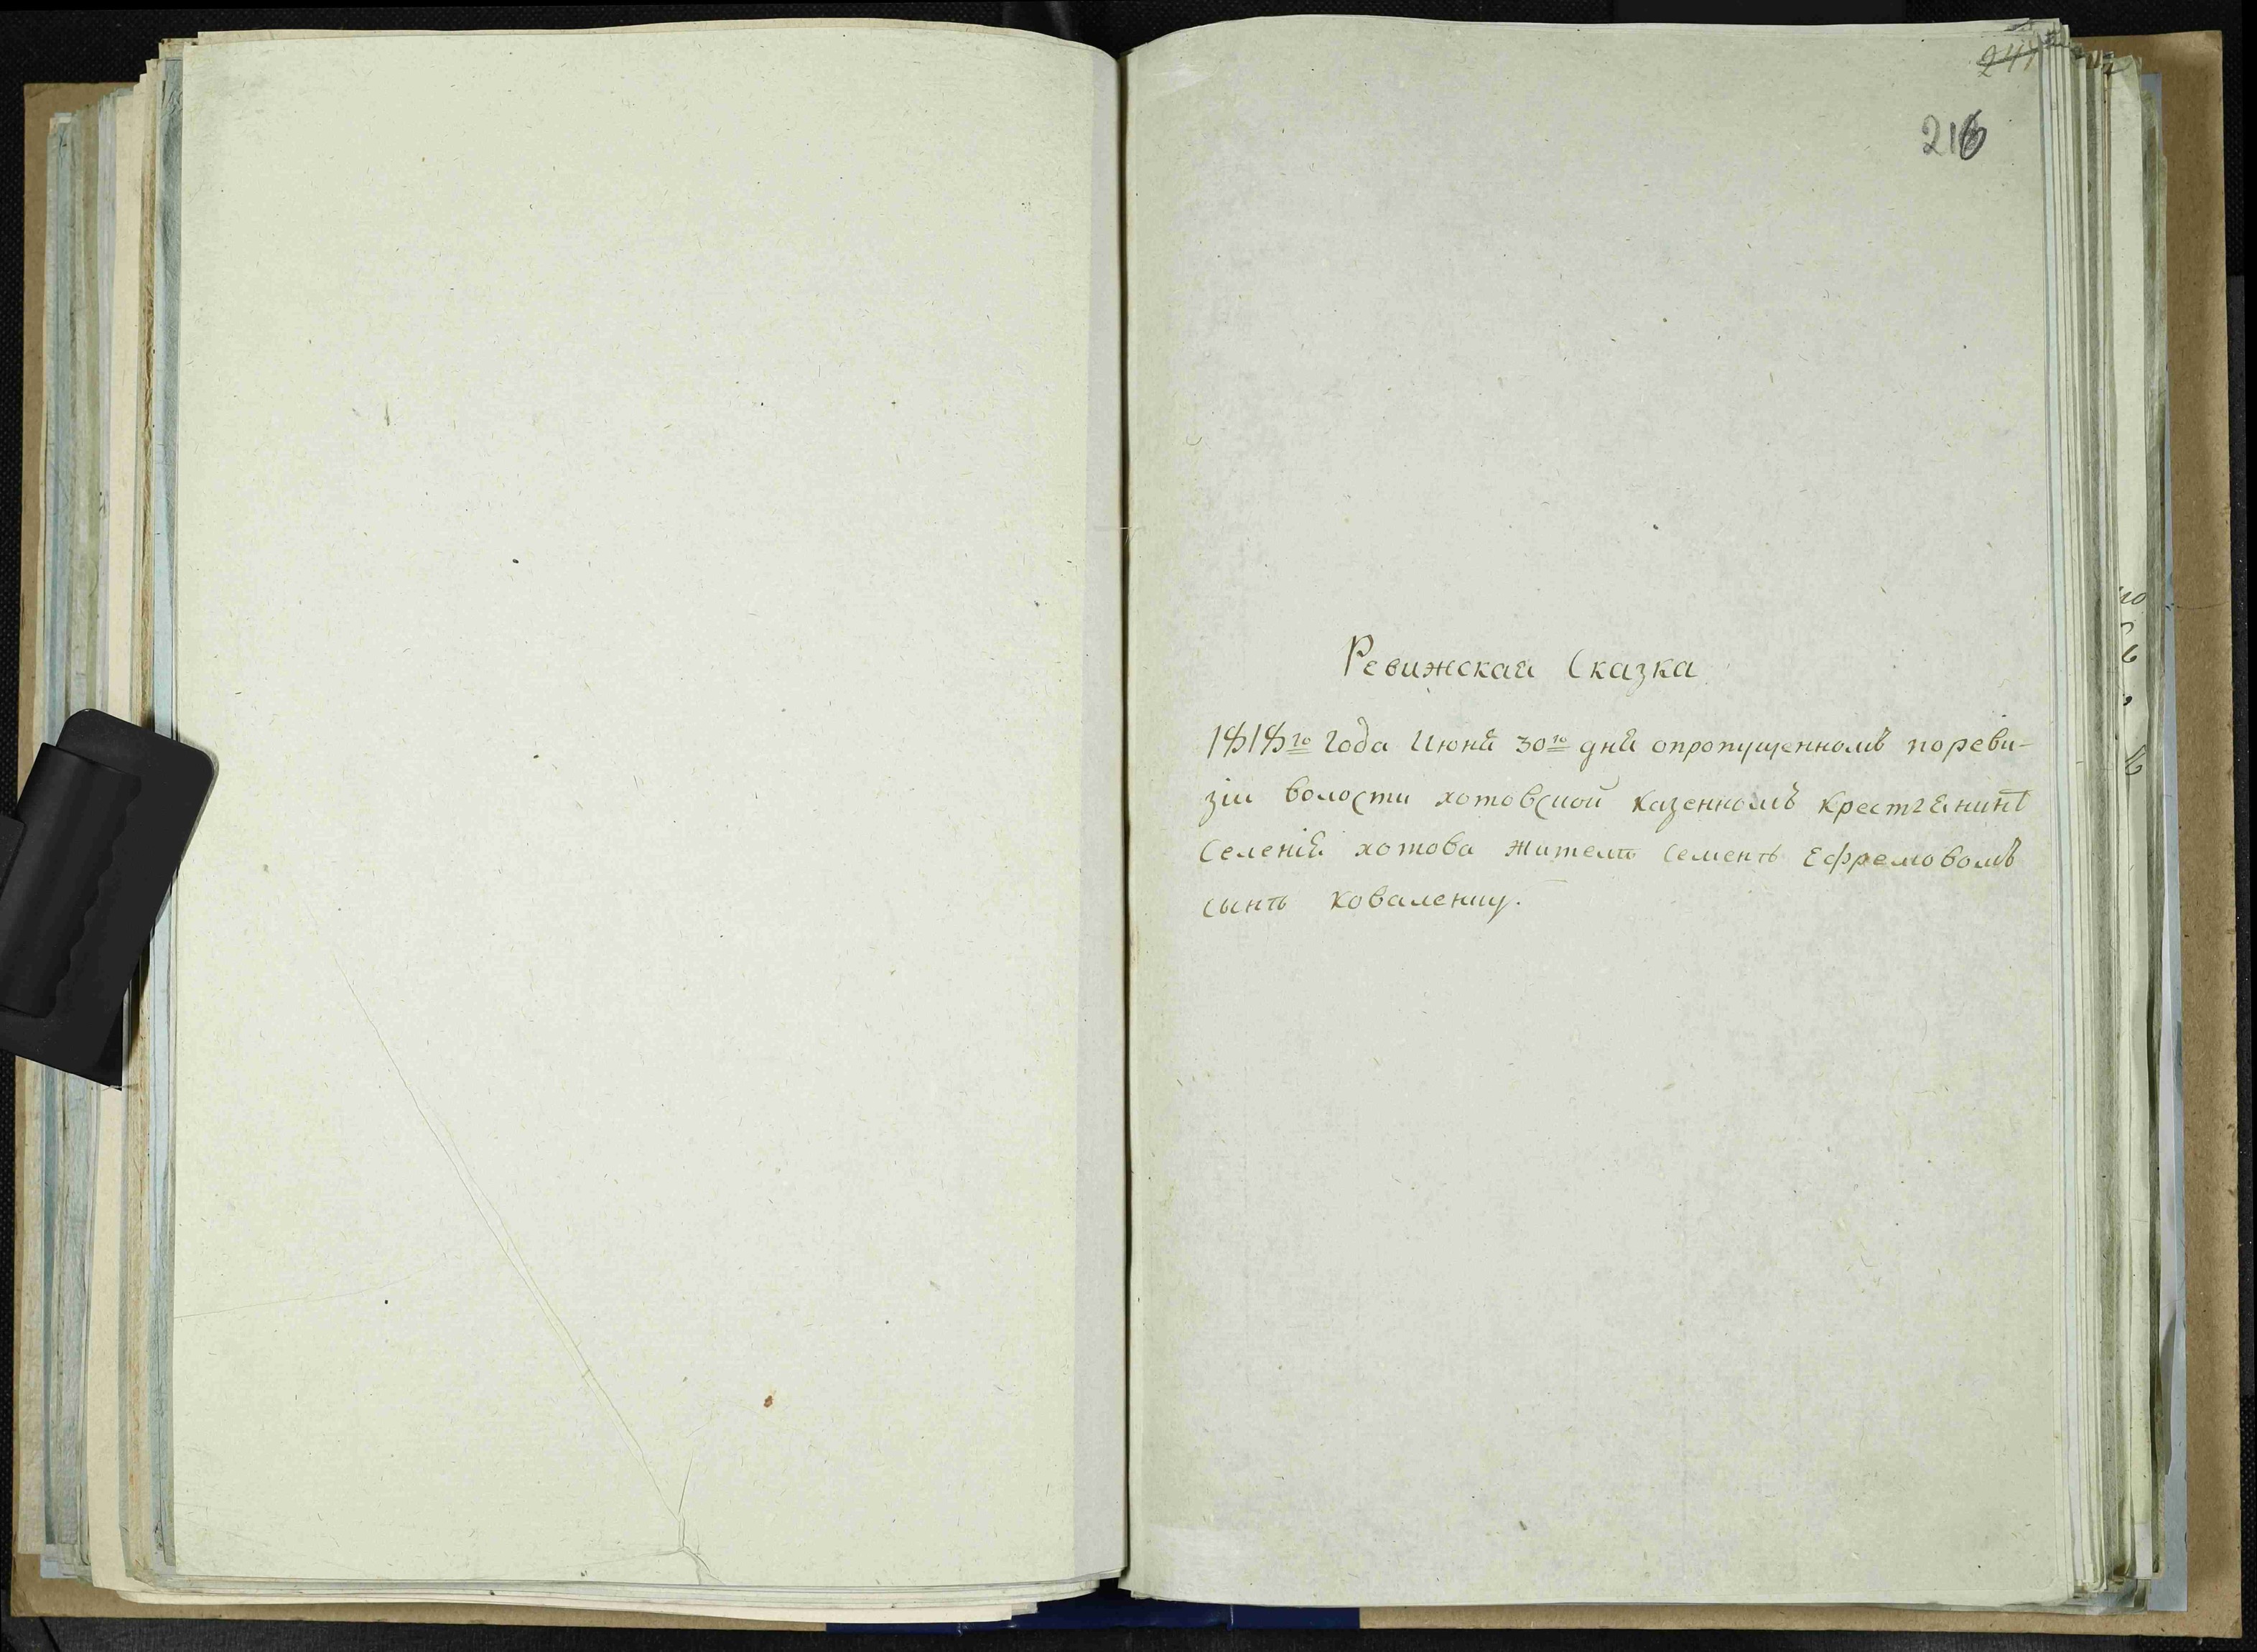 241
216
Ревижская Сказка
1818го года Июня 30го дня опропущенномъ пореви-
зіи волости хотовской казенномъ крестьянинѣ
селенія хотова жителѣ семенѣ Ефремовомъ
сынѣ коваленку.